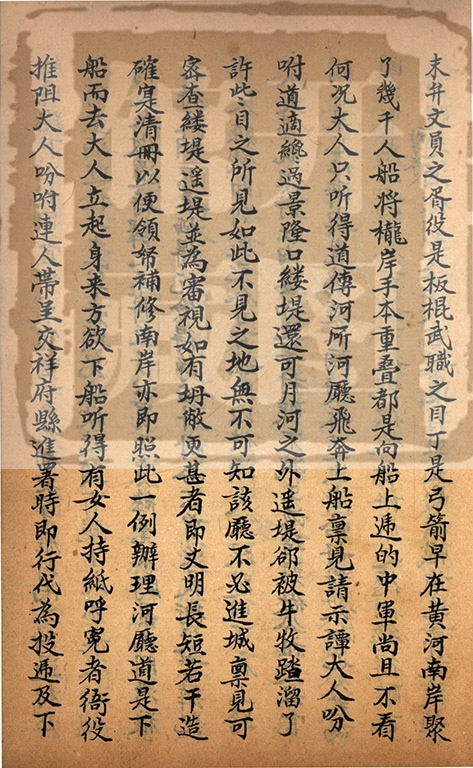 末弁文員之胥役是板棍武職之目丁是弓箭早在黄河南岸聚
了幾千人船将櫳岸手本重疊都是向船上遞的中軍尚且不看
何况大人只听得道傳河所河廳飛奔上船禀見請示譚大人吩
咐道適纔過景隆口縷堤還可月河之外遥堤郤被牛牧踏溜了
許此目之所見如此不見之地無不可知該廳不必進城禀見可
宻查縷堤遥堤並為審視如有坍敝更甚者即丈明長短若干造
確寔清冊以便領帑補修南岸亦即照此一例辦理河廳道是下
船而去大人立起身来方欲下船听得有女人持紙呼寃者衙役
推阻大人吩咐連人帶呈交祥府縣進署時即行代為投遞及下